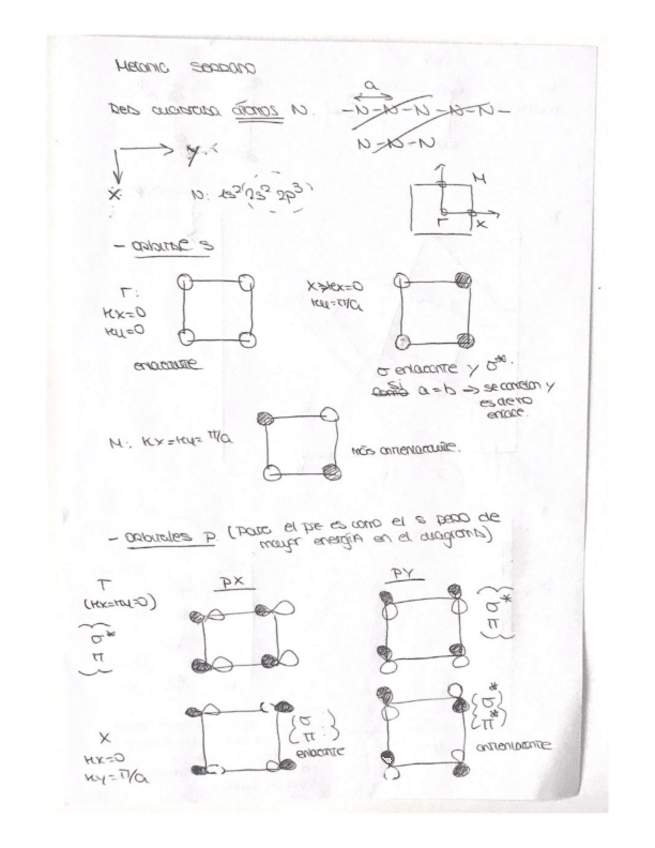 Melanic Serrano
Red cuadrada átomos N.
a
-N-N-N-N-N-
N-N-N
y
x
N: 1s² 2s² 2p³
M
Γ
X
- Orbital s
Γ:
kx=0
ky=0
enlazante
X→kx=0
ky=π/a
σ enlazante y σ*.
si a=b → se cancelan y
es de no
enlace.
M: kx=ky=π/a
más antienlazante.
- Orbitales p (para el pz es como el s pero de
mayor energía en el diagrama)
px
py
Γ
(kx=ky=0)
σ*
π
σ*
π
X
kx=0
ky=π/a
σ
π
enlazante
σ*
π*
antienlazante